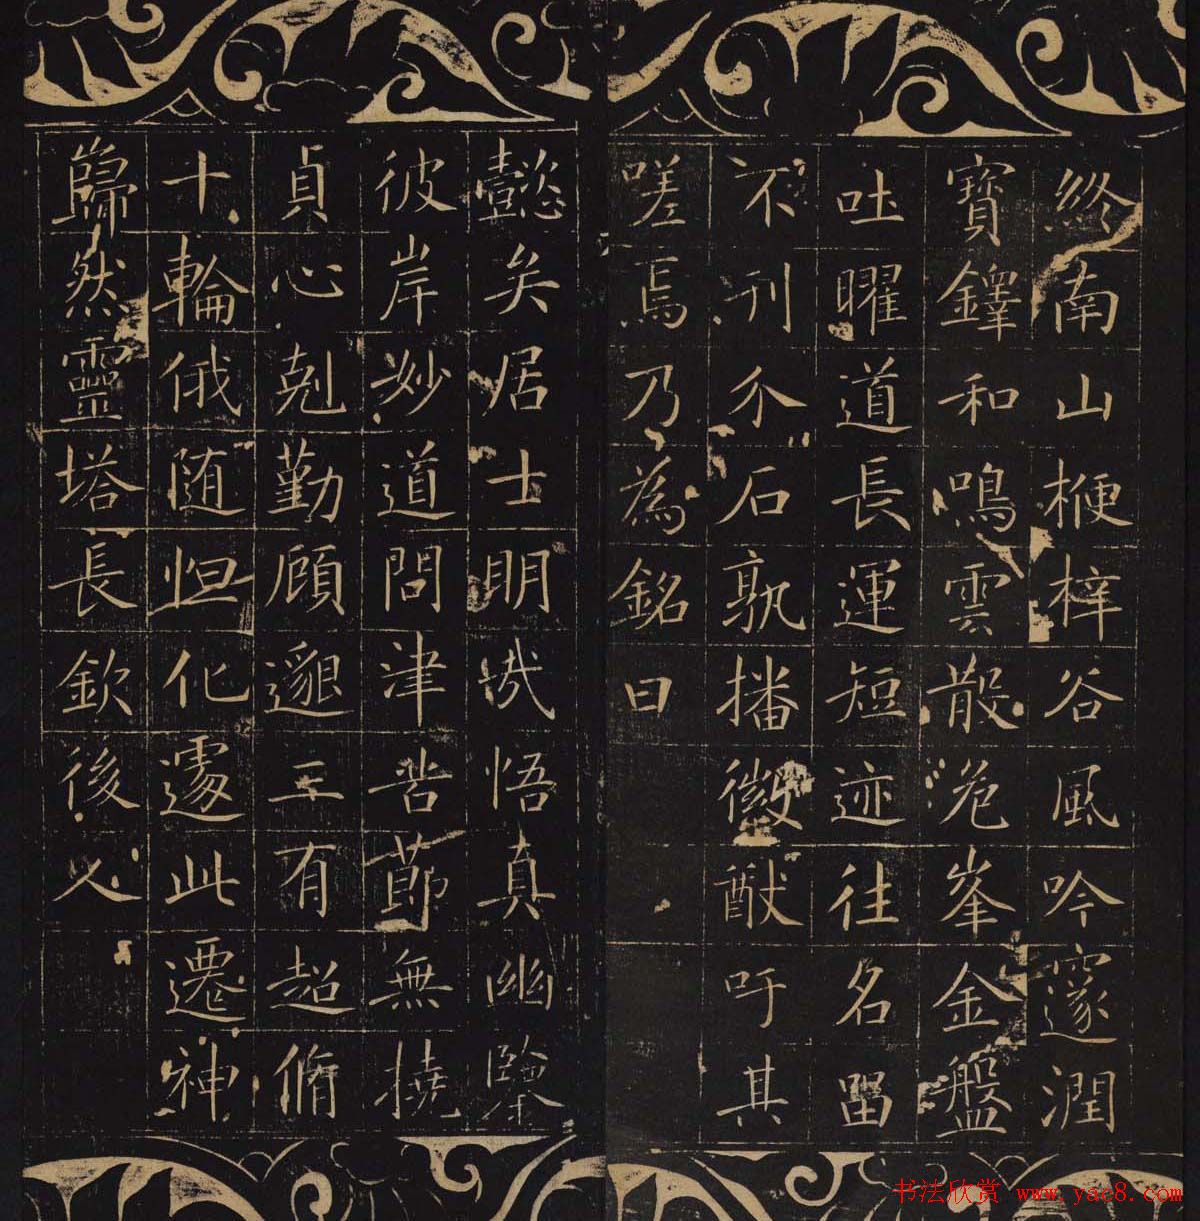 終南山楩梓谷風吟邃澗
寶鐸和鳴雲散危峯金盤
吐曜道長運短迹往名留
不刊介石孰播徽猷吁其
嗟焉乃為銘曰
懿矣居士明哉悟真幽鑒
彼岸妙道問津苦節無撓
貞心剋勤顧邈三有超脩
十輪俄随怛化遽此遷神
巋然靈塔長欽後人
书法欣赏 www.yac8.com